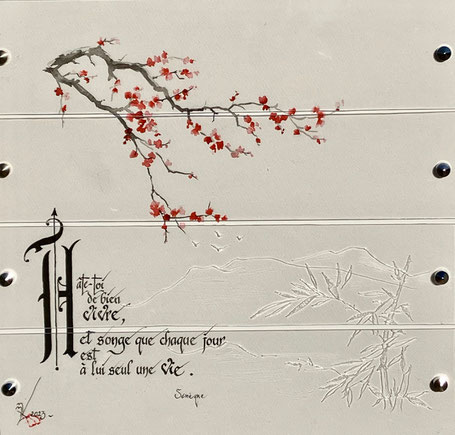 Hate-toi
de bien
vivre,
et songe que chaque jour
est
à lui seul une vie.
Sénèque
2023